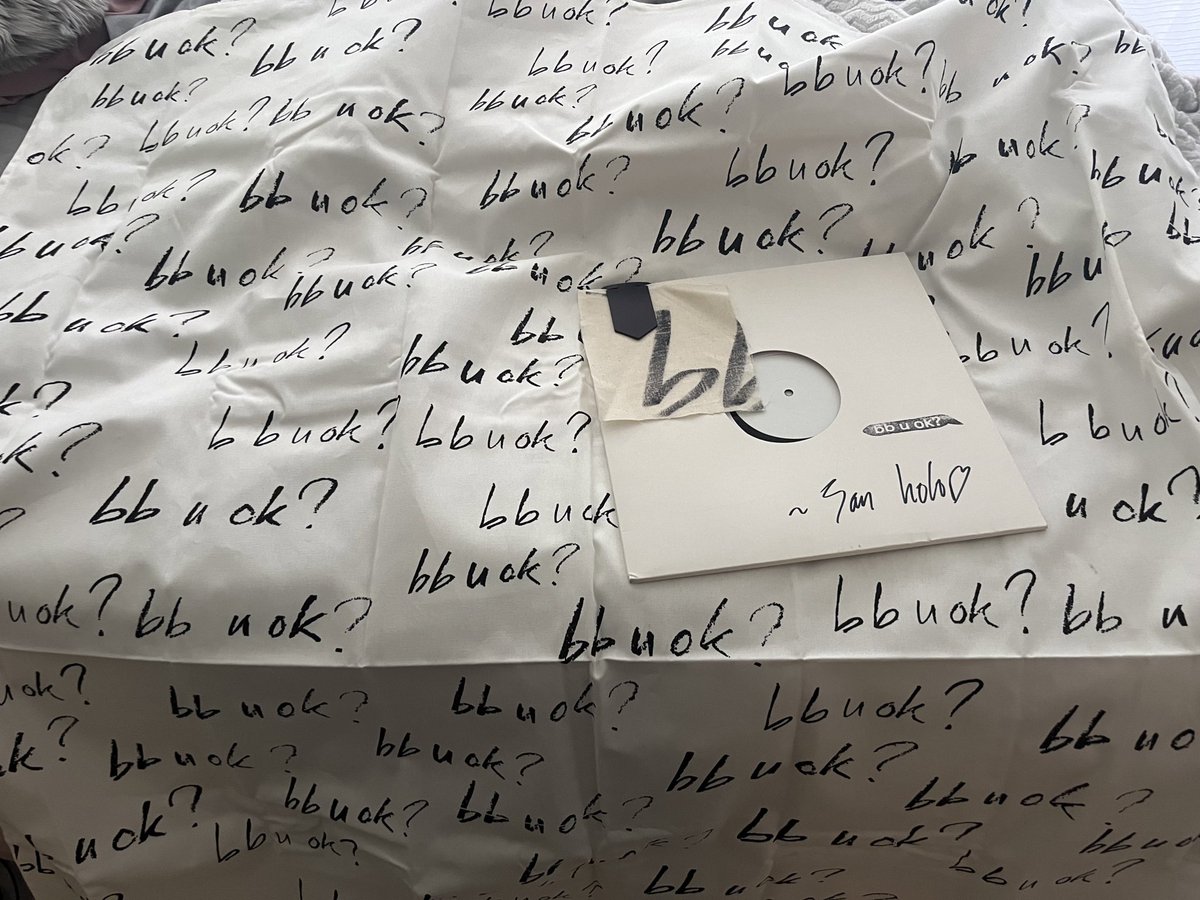 bb u ok?
bb u ok?
bb u ok?
bb u ok?
bb u ok?
bb u ok?
bb u ok?
bb u ok?
bb u ok?
bb u ok?
bb u ok?
ok?
bb u ok?
bb u ok?
bb u ok?
bb u ok?
bb u ok?
bb u ok?
bb u ok?
bb u ok?
bb u ok?
bb u ok?
bb u ok?
bb u ok?
bb u
bb u ok?
bb u ok?
bb
bb u ok?
bb u ok?
bb u ok?
bb u ok?
bb u ok?
bb u ok?
bb u ok
bb u ok?
bb u ok?
~ San holo♡
bb u ok?
u ok?
bb u ok?
u ok?
bb u ok?
bb u ok?
bb u ok?
bb u
u ok?
bb u ok?
bb u ok?
bb u ok?
bb u o
k?
bb u ok?
bb u ok?
bb u ok?
bb u ok?
bb u ok?
bb u ok?
bb u ok?
bb u ok?
bb u ok?
bb u ok?
bb u ok?
bb u ok?